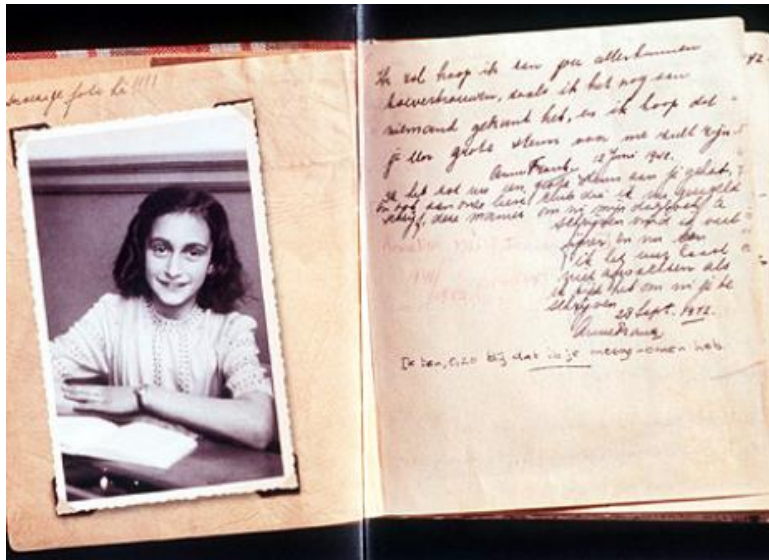 foto hè!!!!
Ik zal hoop ik aan jou alles kunnen
toevertrouwen, zoals ik het nog aan
niemand gekund heb, en ik hoop dat
je een grote steun voor me zult zijn.
Anne Frank. 12 Juni 1942.
Ik heb tot nu een grote steun aan je gehad,
en ook aan onze lieve club die ik nu geregeld
schrijf, deze manier om in mijn dagboek te
schrijven vind ik veel
fijner en nu kan
ik het uur haast
niet afwachten als
ik tijd heb om in je te
schrijven
28 Sept. 1942.
Anne Frank
Ik ben, o, zo blij dat ik je meegenomen heb.
42.